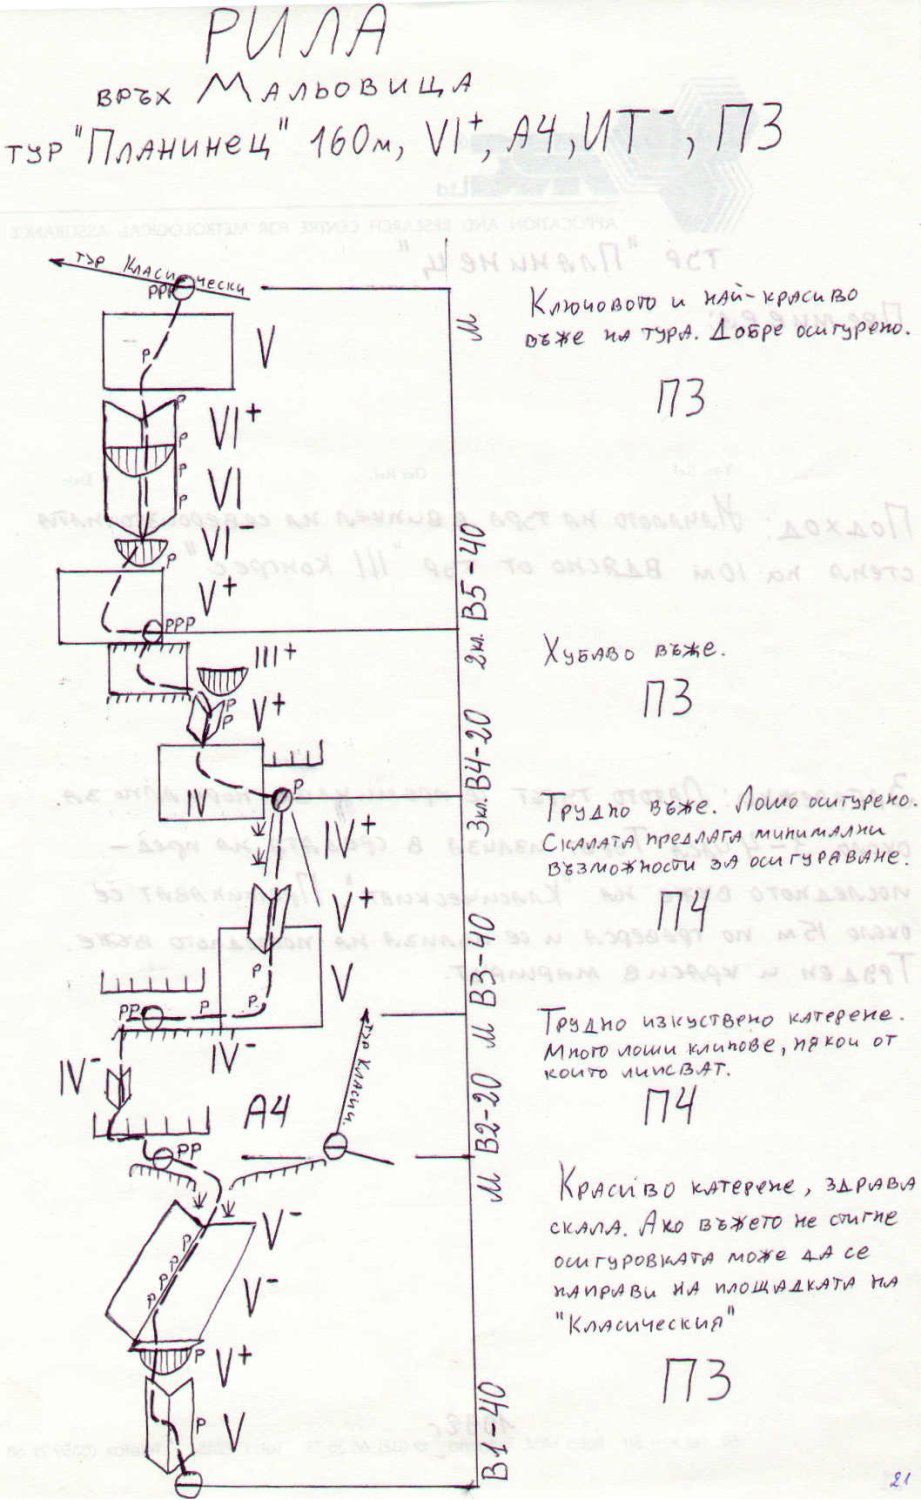 РИЛА
ВРЪХ МАЛЬОВИЦА
ТУР "ПЛАНИНЕЦ" 160м, VI+, А4, ИТ-, П3
ТУР КЛАСИЧЕСКИ
РРР
Ключовото и най-красиво
въже на тура. Добре осигурено.
П3
М
V
Р
Р
VI+
Р
Р
VI
Р
VI-
Р
V+
В5-40
РРР
2кл.
Хубаво въже.
П3
III+
V+
Р
Р
В4-20
IV
Р
3кл.
Трудно въже. Лошо осигурено.
Скалата предлага минимални
възможности за осигураване.
П4
IV+
V+
Р
V
В3-40
РР
Р
Р
IV-
М
Трудно изкуствено катерене.
Много лоши клипове, някои от
които липсват.
П4
IV-
ТУР КЛАСИЧ.
А4
В2-20
РР
М
Красиво катерене, здрава
скала. Ако въжето не стигне
осигуровката може да се
направи на площадката на
"Класическия"
П3
V-
Р
Р
Р
Р
V-
Р
V+
Р
V
В1-40
21